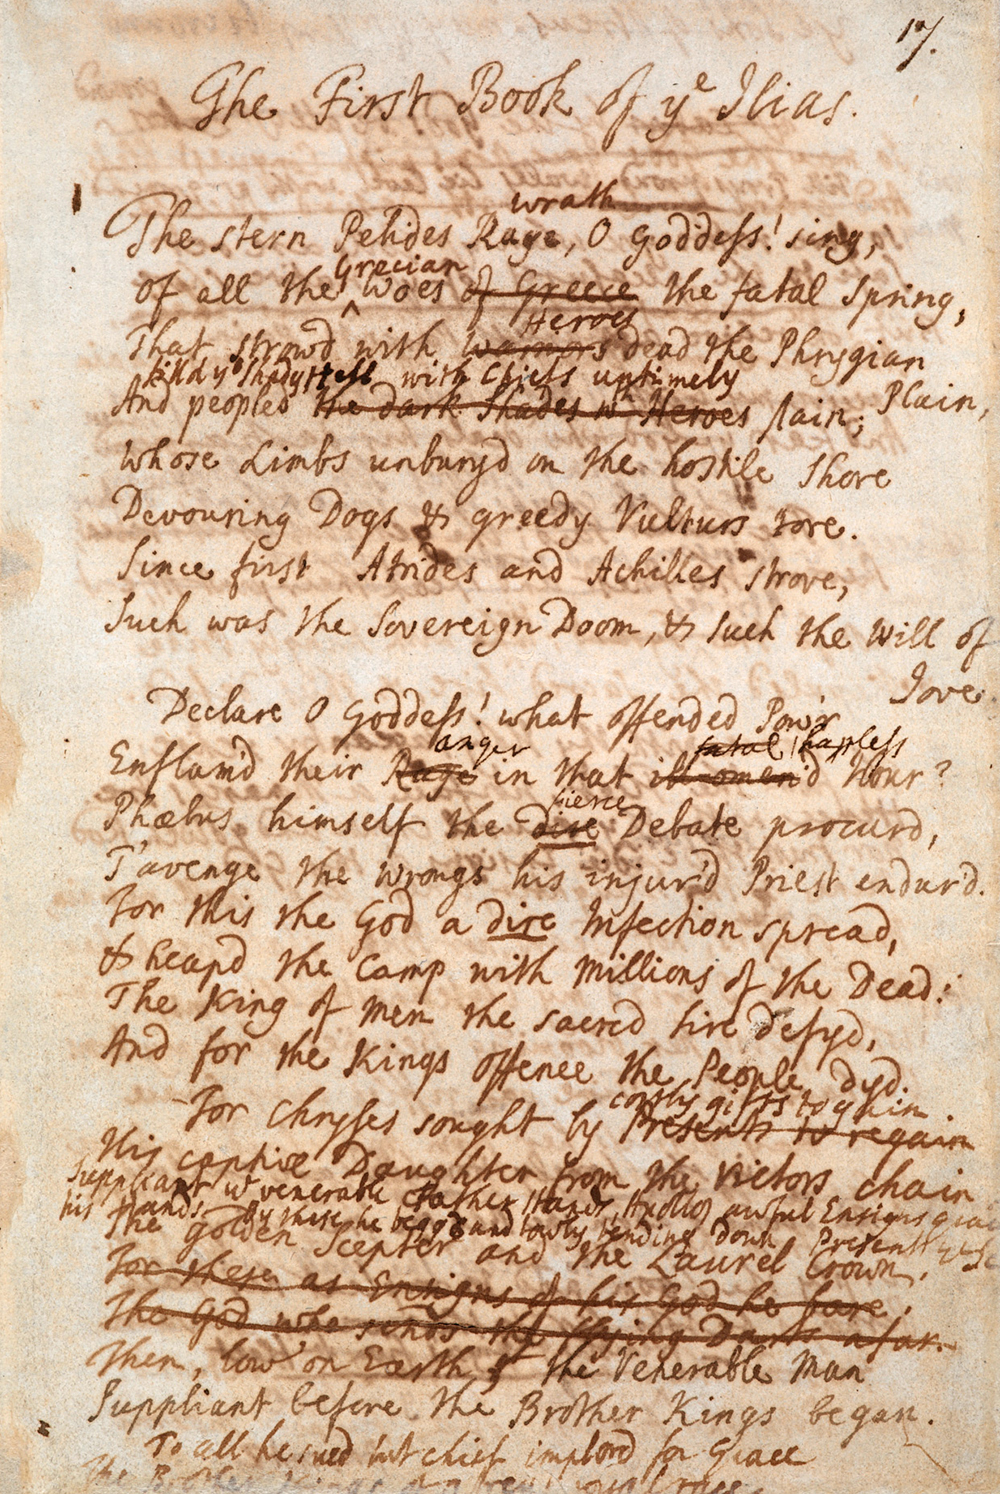 17.
The First Book of yͤ Ilias.
wrath
The stern Pelides Rage, O Goddess! sing,
Grecian
of all the woes of Greece the fatal Spring,
Heroes
That strowd with Warriors dead the Phrygian
Plain,
with Chiefs untimely
And peopled the dark Shades wth Heroes slain;
Whose Limbs unburyd on the hostile Shore
Devouring Dogs & greedy Vulturs tore.
Since first Atrides and Achilles strove,
Such was the Sovereign Doom, & such the will of
Jove.
Declare O Goddess! what offended Pow'r
anger fatal hapless
Enflam'd their Rage in that ill-omen'd Hour?
fierce
Phœbus himself the dire Debate procurd,
T'avenge the wrongs his injur'd Priest endur'd.
For this the God a dire Infection spread,
& heapd the Camp with Millions of the Dead:
The King of Men the sacred Sire defyd,
And for the Kings offence the People dyd.
costly gifts to gain
For Chryses sought by Presents to regain
His captive Daughter from the Victors chain
Suppliant wth venerable Father stands, Apollos awful Ensigns
his Hands. By these he beggd and lowly bending down Present
The Golden Scepter and the Laurel Crown,
For these as Ensigns of his God he bare,
The God who sends the flying Darts afar.
Then, low on Earth, the Venerable Man
Suppliant before the Brother Kings began.
To all he sued but chief implord for Grace
The Brother Kings of Atreus royal race